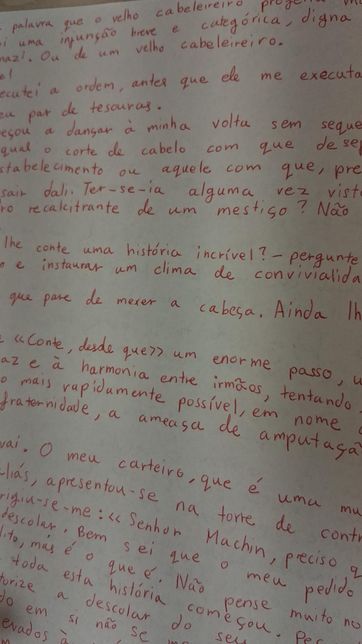 palavra que o velho cabeleireiro
uma injunção breve e categórica, digna
nazi. Ou de um velho cabeleireiro.
ecutei a ordem, antes que ele me executa
eu par de tesouras.
eçou a dançar à minha volta sem seque
qual o corte de cabelo com que dese
stabelecimento ou aquele com que, pre
sair dali. Ter-se-ia alguma vez vist
ho recalcitrante de um mestiço? Não
lhe conte uma história incrível? – pergunte
o e instaurar um clima de convivialida
que pare de mexer a cabeça. Ainda lh
e «Conte, desde que» um enorme passo, u
az e à harmonia entre irmãos, tentando
o mais rapidamente possível, em nome
fraternidade, a ameaça de amputaçã
vai. O meu carteiro, que é uma mu
aliás, apresentou-se na torre de contr
rigiu-se-me: «Senhor Machin, preciso q
descolar. Bem sei que o meu pedido
lito, mas é o que é. Não pense muito no
toda esta história começou. Pe
torize a descolar do seu
do em si não se
evados à